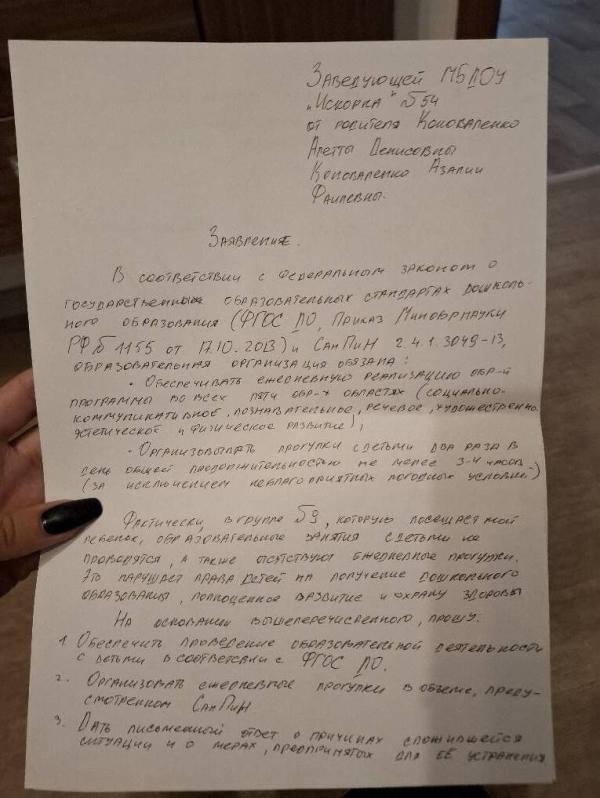 Заведующей МБДОУ
"Искорка" №54
от родителя Коноваленко
Аретты Денисовны
Коноваленко Азалии
Фаилевны.
Заявление.
В соответствии с Федеральным законом о
государственных образовательных стандартах дошколь-
ного образования (ФГОС ДО, Приказ Минобрнауки
РФ № 1155 от 17.10.2013) и СанПин 2.4.1.3049-13,
образовательная организация обязана:
• Обеспечивать ежедневную реализацию обр-й
программы во всех пяти обр-х областях (социально-
коммуникативное, познавательное, речевое, художественно-
эстетическое и физическое развитие);
• Организовывать прогулки с детьми два раза в
день общей продолжительностью не менее 3-4 часов
(за исключением неблагоприятных погодных условий)
Фактически, в группе №9, которую посещает мой
ребенок, образовательные занятия с детьми не
проводятся, а также отсутствуют ежедневные прогулки.
Это нарушает права детей на получение дошкольного
образования, полноценное развитие и охрану здоровья
На основании вышеперечисленного, прошу:
1. Обеспечить проведение образовательной деятельности
с детьми в соответсвии с ФГОС ДО.
2. Организовать ежедневные прогулки в объеме, преду-
смотренном СанПиН
3. Дать письменный ответ о причинах сложившейся
ситуации и о мерах, предпринятых для её устранения